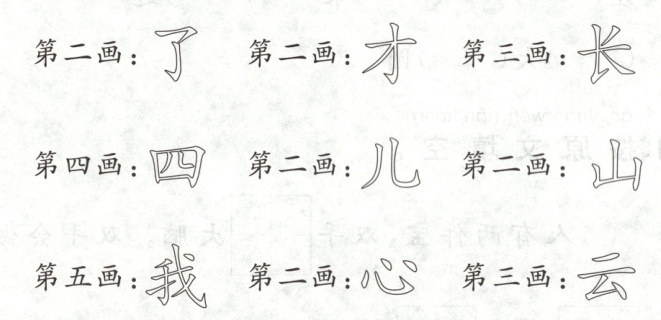 第二画：了 第二画：才 第三画：长
第四画：四 第二画：儿 第二画：山
第五画：我 第二画：心 第三画：云